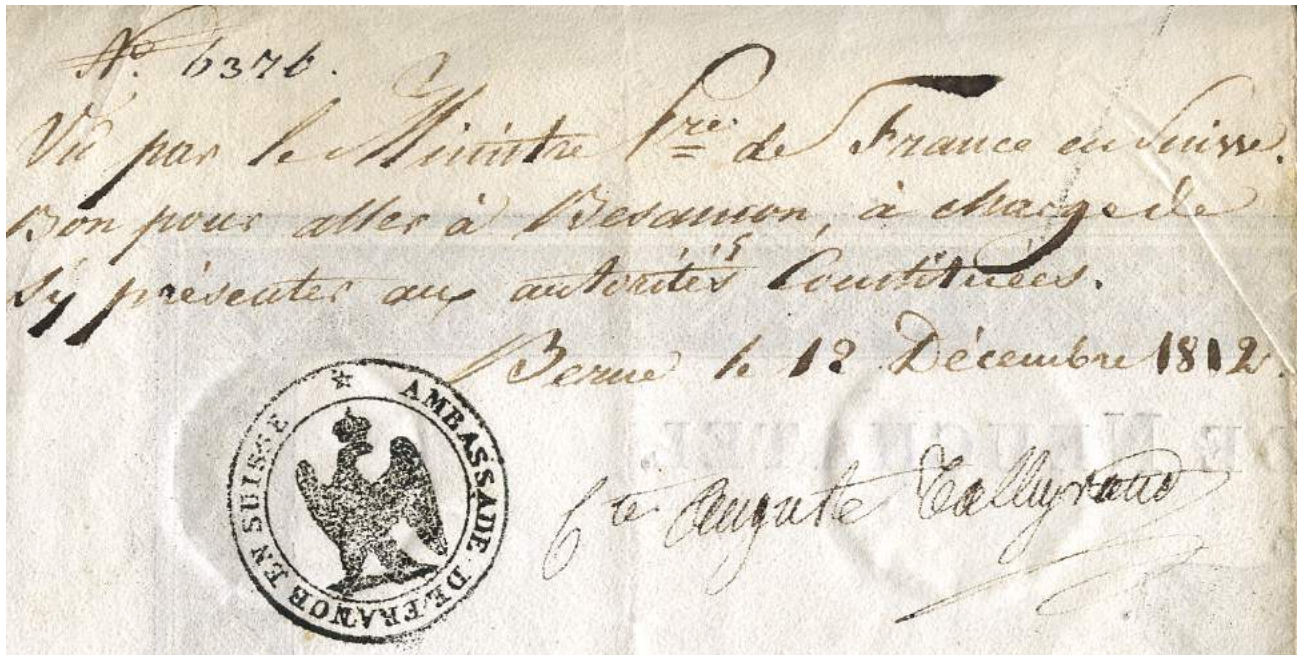 N.º 6376.
Vu par le Ministre Pre. de France en Suisse.
Bon pour aller à Besancon, à charge de
s'y présenter aux autorités Constituées.
Berne le 12 Décembre 1812.
AMBASSADE DE FRANCE EN SUISSE
Cte Auguste Talleyrand
DE NEUCHATEL.